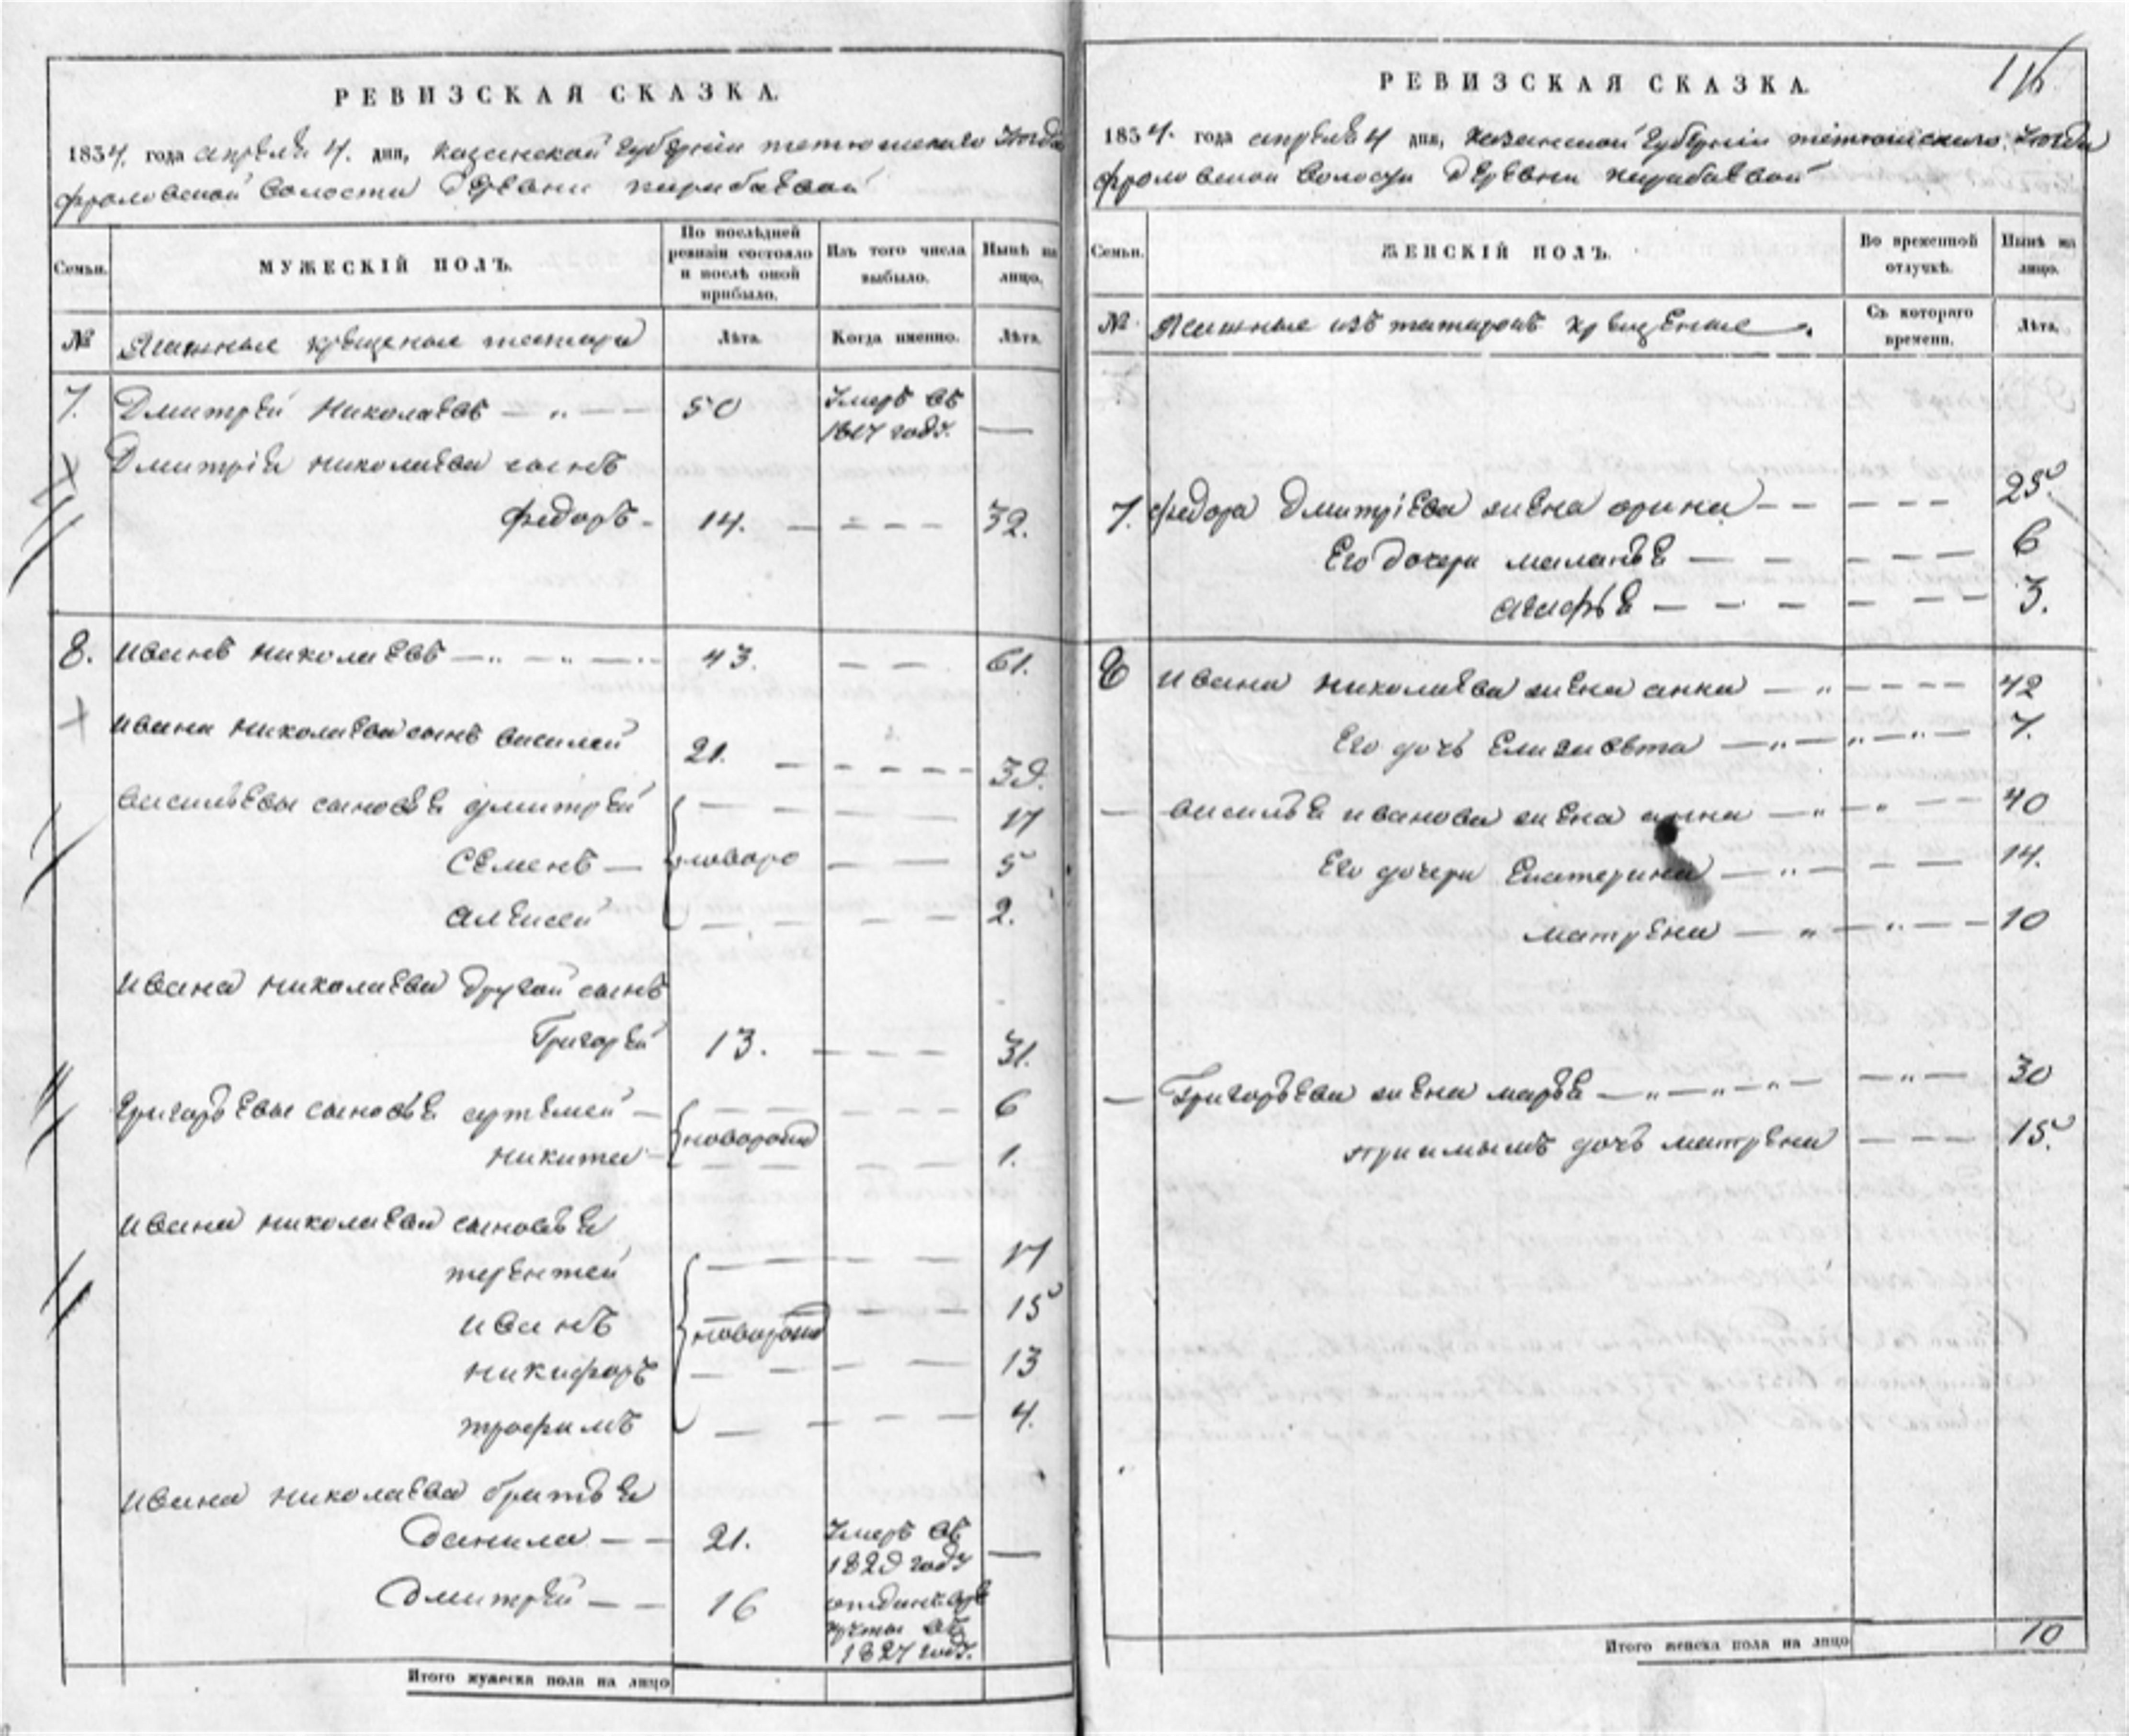 РЕВИЗСКАЯ СКАЗКА.
1834. года апреля 4. дня, Казанской губернии тетюшскаго уезда
фроловской волости деревни кирибаевой
Семьи.
МУЖЕСКІЙ ПОЛЪ.
По послѣдней ревизіи состояло и послѣ оной прибыло.
Изъ того числа выбыло.
Нынѣ на лицо.
№
Ясашные крещеные татара
Лѣта.
Когда именно.
Лѣта.
7. Дмитрей Николаевъ — „ — 50 умеръ въ
18 году. —
Дмитрія николаева сынъ
федоръ - 14. — — — — 32.
8. иванъ николаевъ —„ — „ — 43. — — 61.
ивана николаева сынъ василей 21. — — — — — 39.
васильевы сыновья дмитрей — — — — 17
семенъ — новоро — — 5
алексей — — — — 2.
ивана николаева другой сынъ
Григорей 13. — — — — 31.
григорьевы сыновья — — — — — 6
никита новорож — — — — 1.
ивана николаева сыновья
терентей — — — 17
иванъ новорож — — 15
никифоръ — — — — 13
трофимъ — — — — 4.
ивана николаева братья
данила — — 21. умеръ въ
1829 году —
дмитрей — — 16 отданъ въ
рекруты въ
1827 году.
Итого мужеска пола на лицо
РЕВИЗСКАЯ СКАЗКА. 116
1834. года апреля 4 дня, Казанской губерніи тетюшскаго уезда
фроловской волости деревни кирибаевой
Семьи.
ЖЕНСКІЙ ПОЛЪ.
Во временной отлучкѣ.
Нынѣ на лицо.
№
Ясашные изъ татаръ крещеные
Съ котораго времени.
Лѣта.
7. федора Дмитріева жена орина — — — — — 25.
Его дочери маланья — — — — — 6
агафья — — — — — — — 3.
8 ивана николаева жена анна — „ — — — — 42
Его дочь елизавета — „ — „ — „ — 7.
— василья иванова жена анна — „ — „ — — 40
Его дочери Екатерина — „ — — — — 14.
матрена — „ — „ — — 10
— Григорьева жена марья — „ — „ — „ — — „ — 30
приимышъ дочь матрена — — — 15.
Итого женска пола на лицо 10